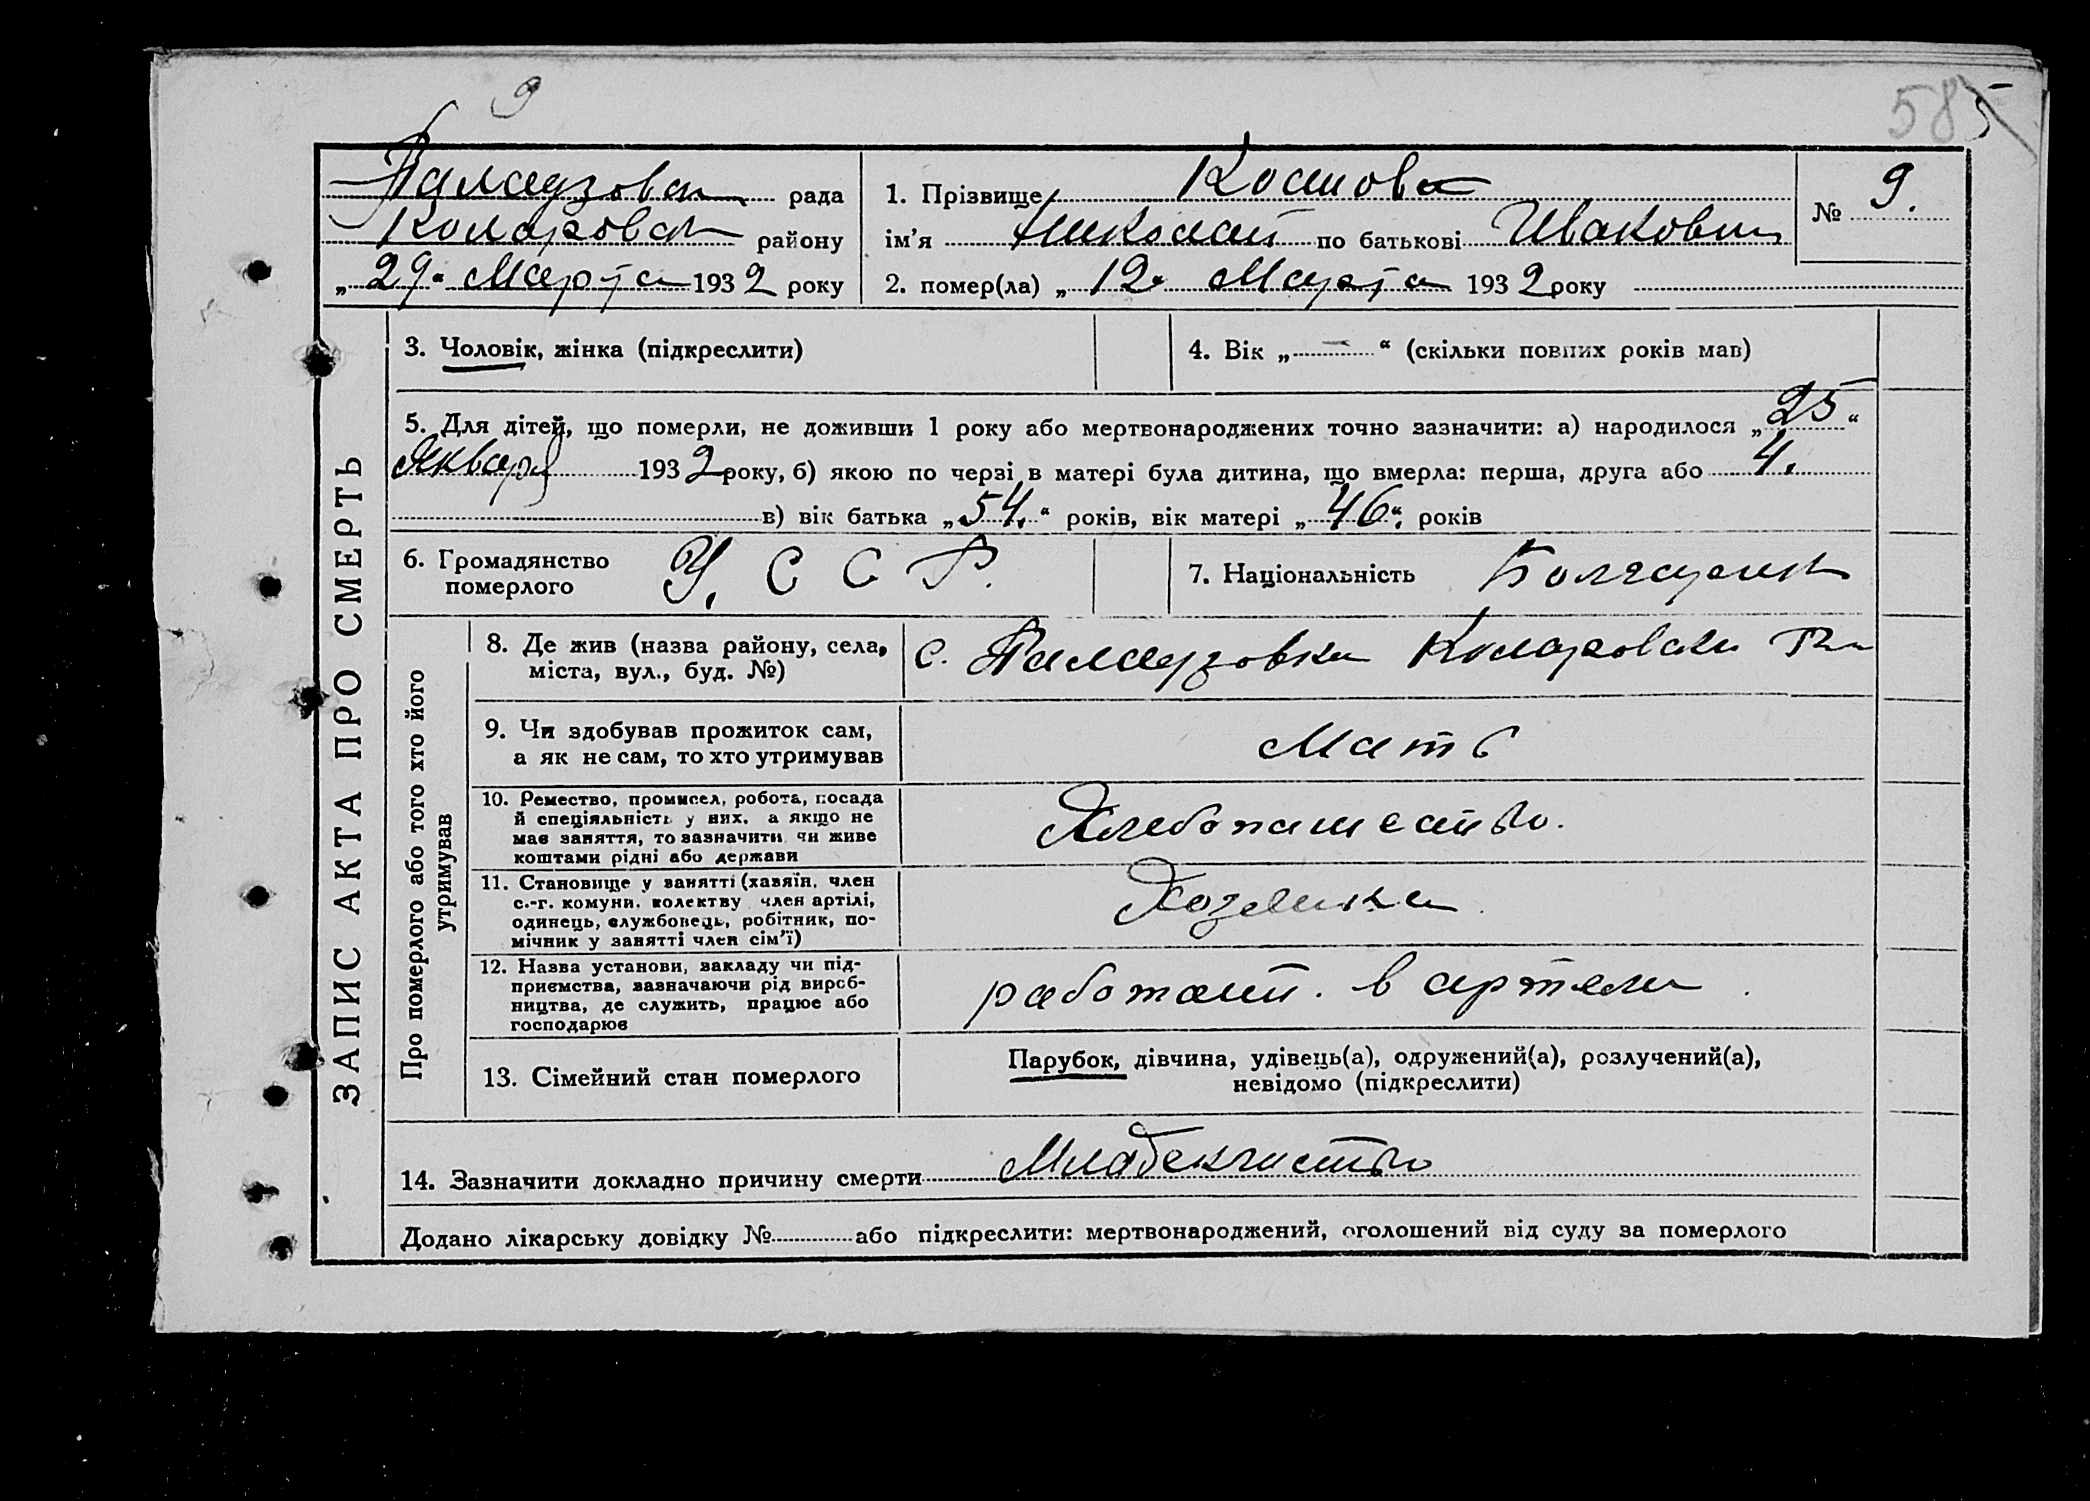 9
585
Палаузовск рада
Коларовск району
„29“ Марта 1932 року
1. Прізвище
ім’я Николай по батькові Иванович
№ 9.
2. помер(ла) „12“ Марта 1932 року
ЗАПИС АКТА ПРО СМЕРТЬ
3. Чоловік, жінка (підкреслити)
4. Вік „—“ (скільки повних років мав)
5. Для дітей, що померли, не доживши 1 року або мертвонароджених точно зазначити: а) народилося „25“
Января 1932 року, б) якою по черзі в матері була дитина, що вмерла: перша, друга або 4.
в) вік батька „54.“ років, вік матері „46“. років
6. Громадянство
померлого
У. С С Р.
7. Національність Болгарин
Про померлого або того хто його
утримував
8. Де жив (назва району, села,
міста, вул., буд. №)
с. Палаузовка Коларовск Р-на
9. Чи здобував прожиток сам,
а як не сам, то хто утримував
Мать
10. Ремество, промисел, робота, посада
й спеціяльність у них, а якщо не
має заняття, то зазначити чи живе
коштами рідні або держави
Хлебопашество.
11. Становище у занятті (хазяїн, член
с.-г. комуни, колектву член артілі,
одинець, службовець, робітник, по-
мічник у занятті член сім’ї)
Хозяйка
12. Назва установи, закладу чи під-
приємства, зазначаючи рід вироб-
ництва, де служить, працює або
господарює
работает. в артели.
13. Сімейний стан померлого
Парубок, дівчина, удівець(а), одружений(а), розлучений(а),
невідомо (підкреслити)
14. Зазначити докладно причину смерти Младенчество
Додано лікарську довідку № або підкреслити: мертвонароджений, оголошений від суду за померлого